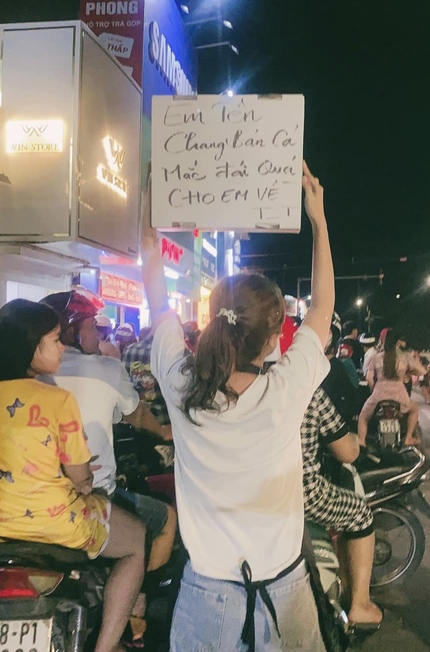 PHONG
HỖ TRỢ TRẢ GÓP
THẤP
SAMSUNG
VIN STORE
Em Tên
Chang Bán Cá
Mắc đái Quá
CHO EM VỀ
T_T
8-P1